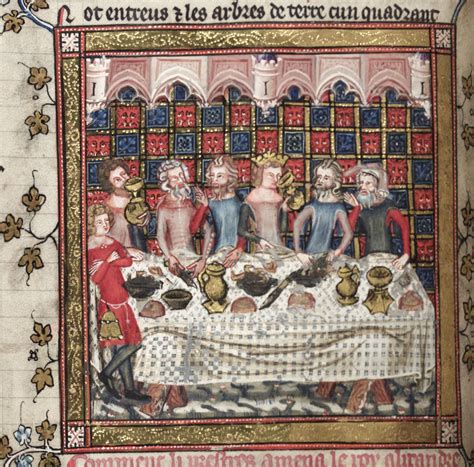 ot entreus ⁊ les arbres de terre cun quadrant
prestres amena le roy